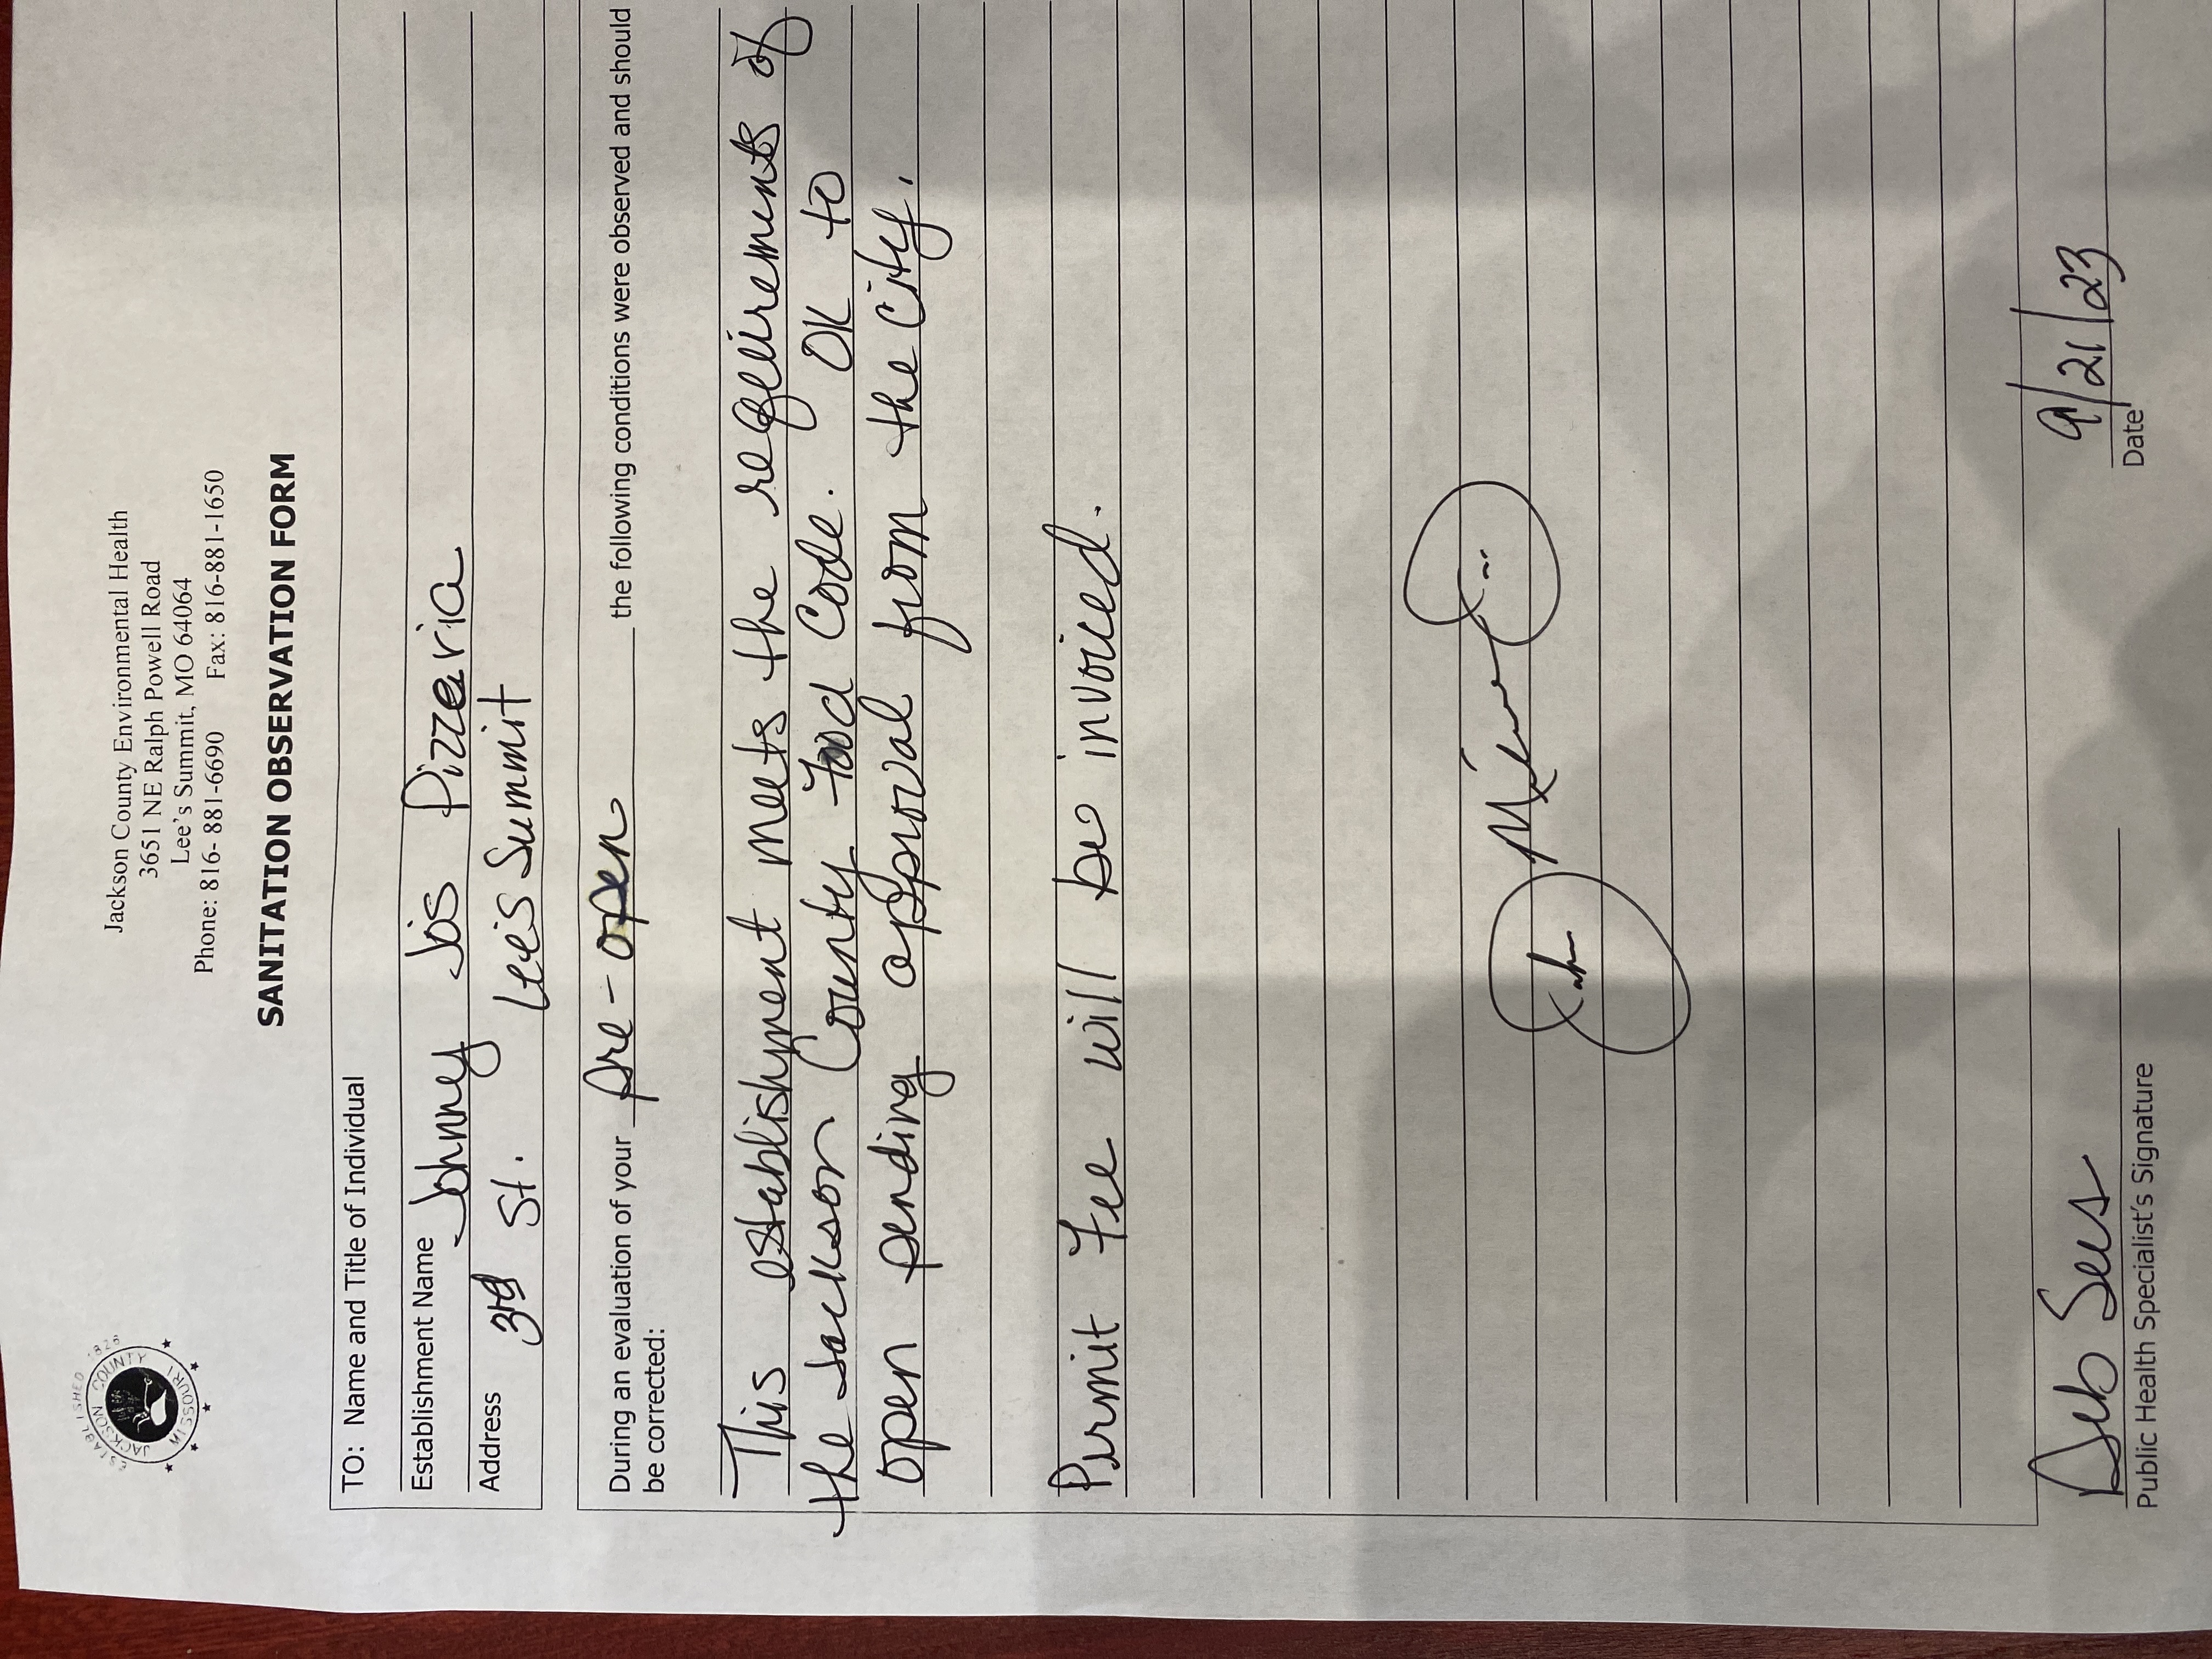 ESTABLISHED 1826
JACKSON COUNTY
MISSOURI
Jackson County Environmental Health
3651 NE Ralph Powell Road
Lee's Summit, MO 64064
Phone: 816- 881-6690 Fax: 816-881-1650
SANITATION OBSERVATION FORM
TO: Name and Title of Individual
Establishment Name Johnny Jo's Pizzeria
Address 3rd St. Lee's Summit
During an evaluation of your pre-open the following conditions were observed and should
be corrected:
This establishment meets the requirements of
the Jackson County Food Code. OK to
open pending approval from the city.
Permit Fee will be invoiced.
Deb Sees 9/21/23
Public Health Specialist's Signature Date